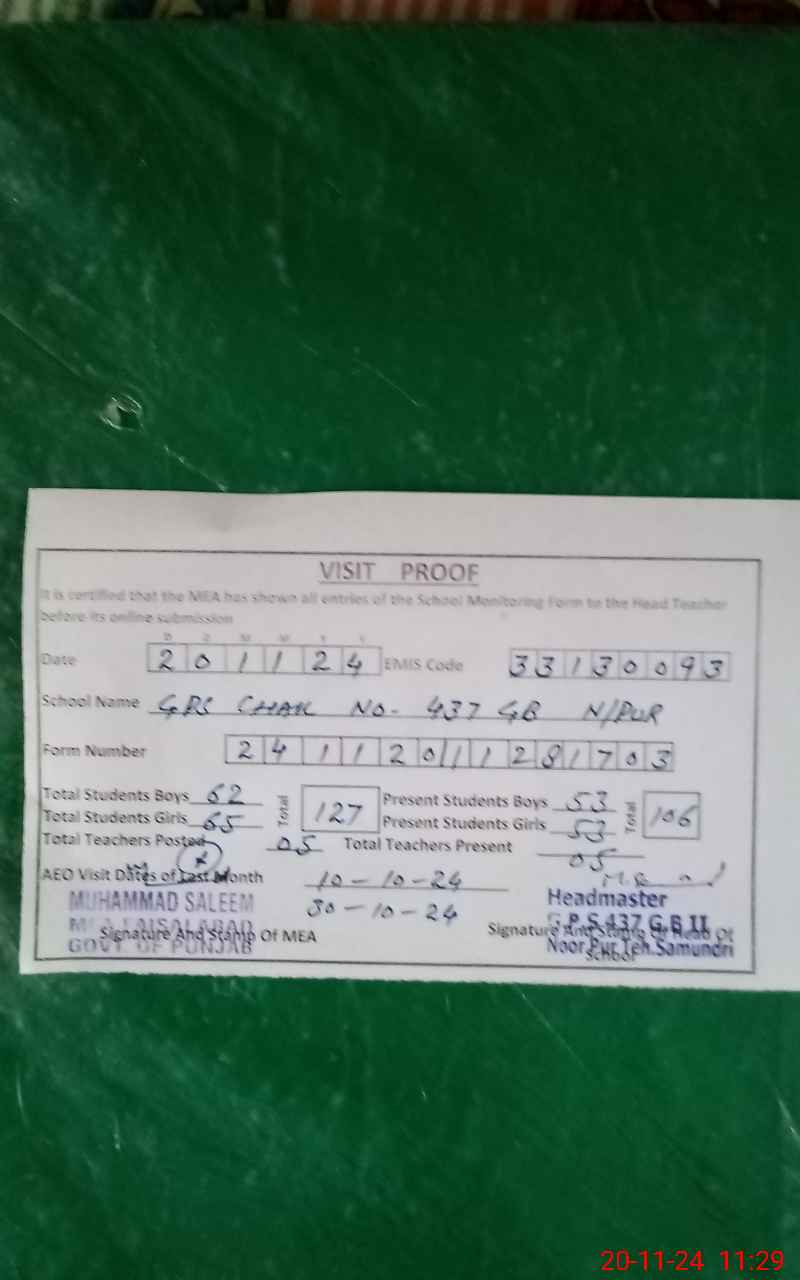 VISIT PROOF
It is certified that the MEA has shown all entries of the School Monitoring Form to the Head Teacher
before its online submission
D D M M Y Y
Date 2 0 1 1 2 4 EMIS Code 3 3 1 3 0 0 9 3
School Name GPS CHAK NO- 437 GB N/PUR
Form Number 2 4 1 1 2 0 1 1 2 8 1 7 0 3
Total Students Boys 62 Total 127 Present Students Boys 53 Total 106
Total Students Girls 65 Present Students Girls 53
Total Teachers Posted 05 Total Teachers Present 05
AEO Visit Dates of Last Month 10-10-24
30-10-24
MUHAMMAD SALEEM
MEA FAISALABAD
GOVT OF PUNJAB
Signature And Stamp Of MEA
Headmaster
G.P.S 437 G.B II
Noor Pur Teh. Samundri
Signature And Stamp Of Head Of
School
20-11-24 11:29